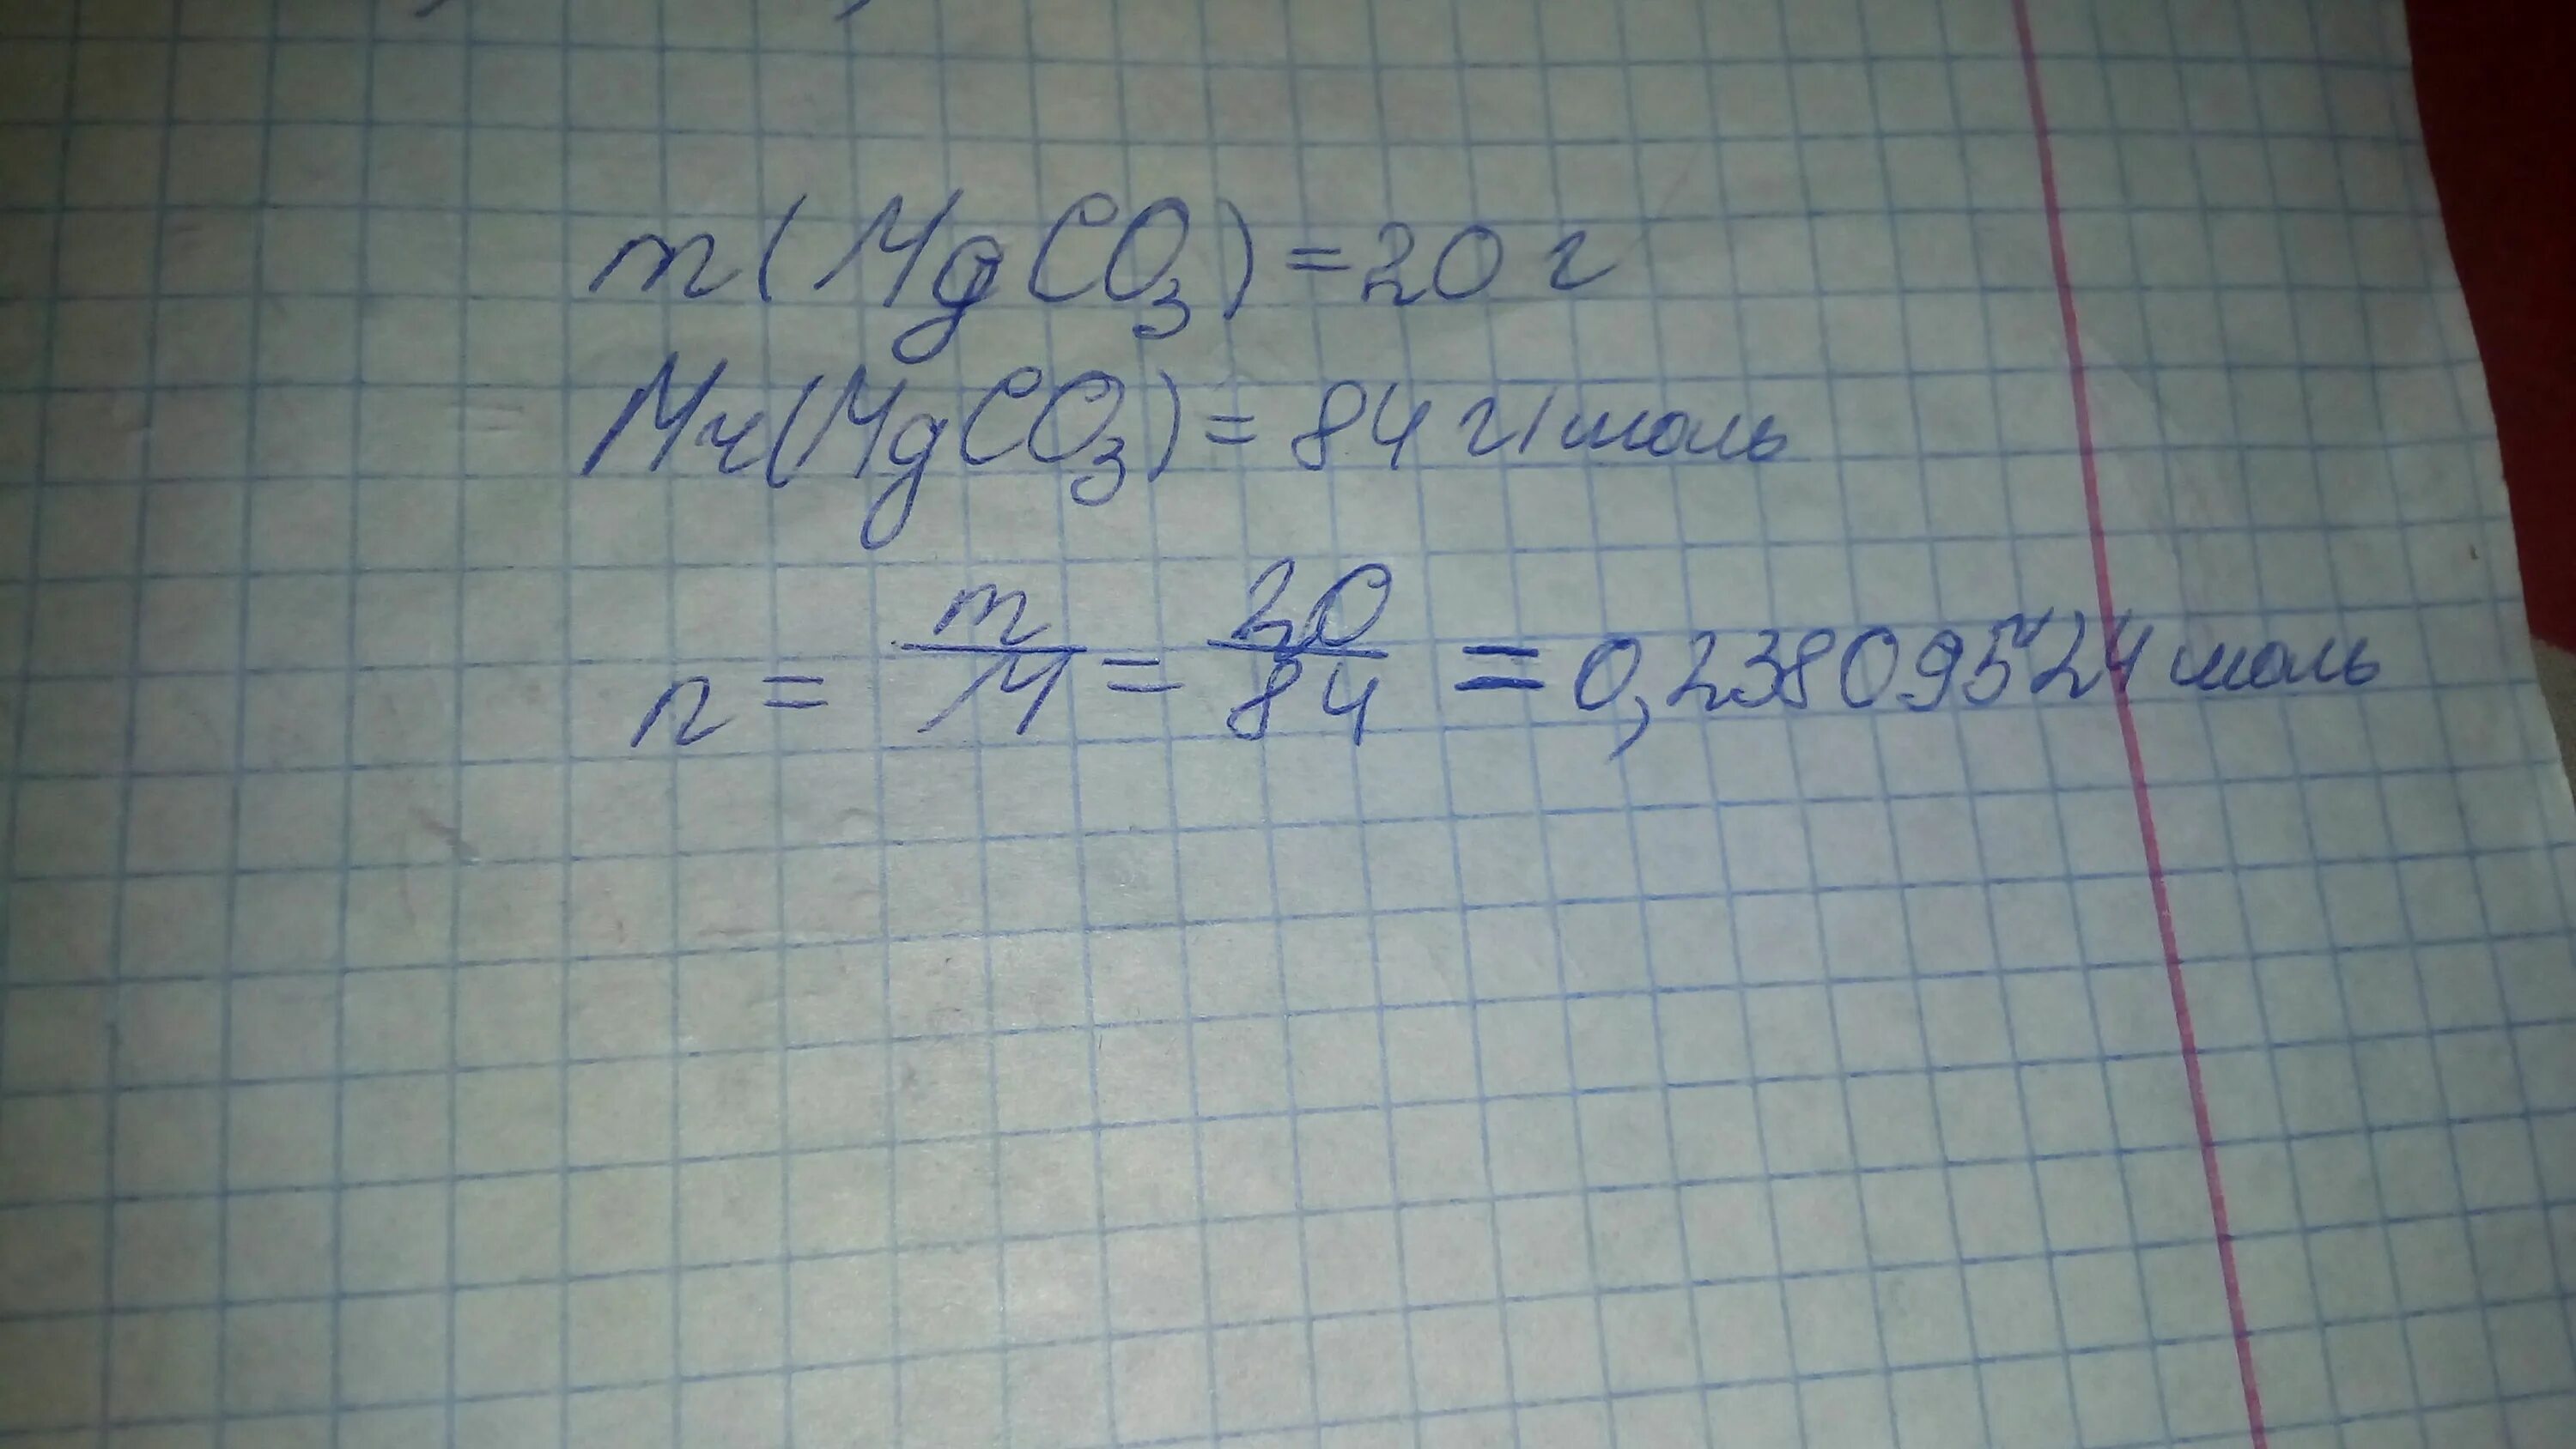 m(MgCO₃)=20 г
Mr(MgCO₃)= 84 г/моль
n = m/M = 20/84 = 0,23809524 моль